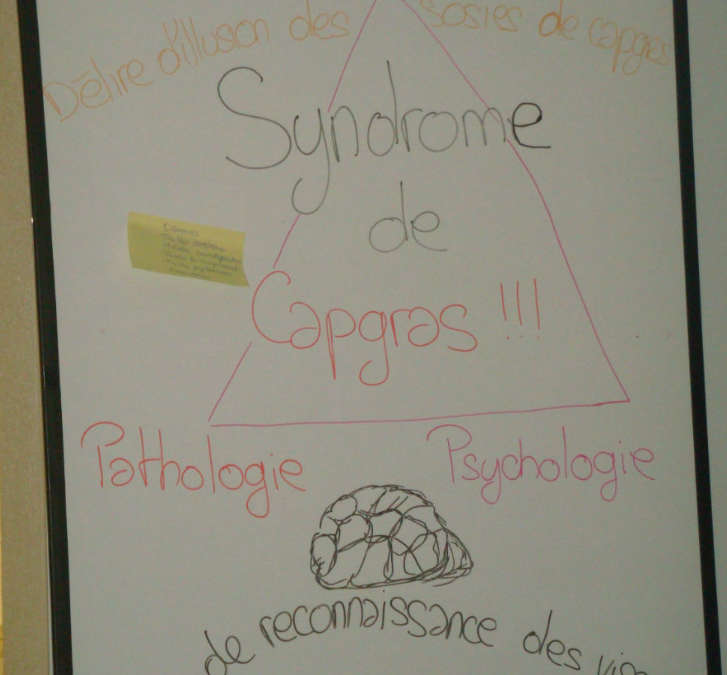 Délire d'illusion des sosies de capgras
Syndrome
de
Capgras !!!
Pathologie
Psychologie
de reconnaissance des